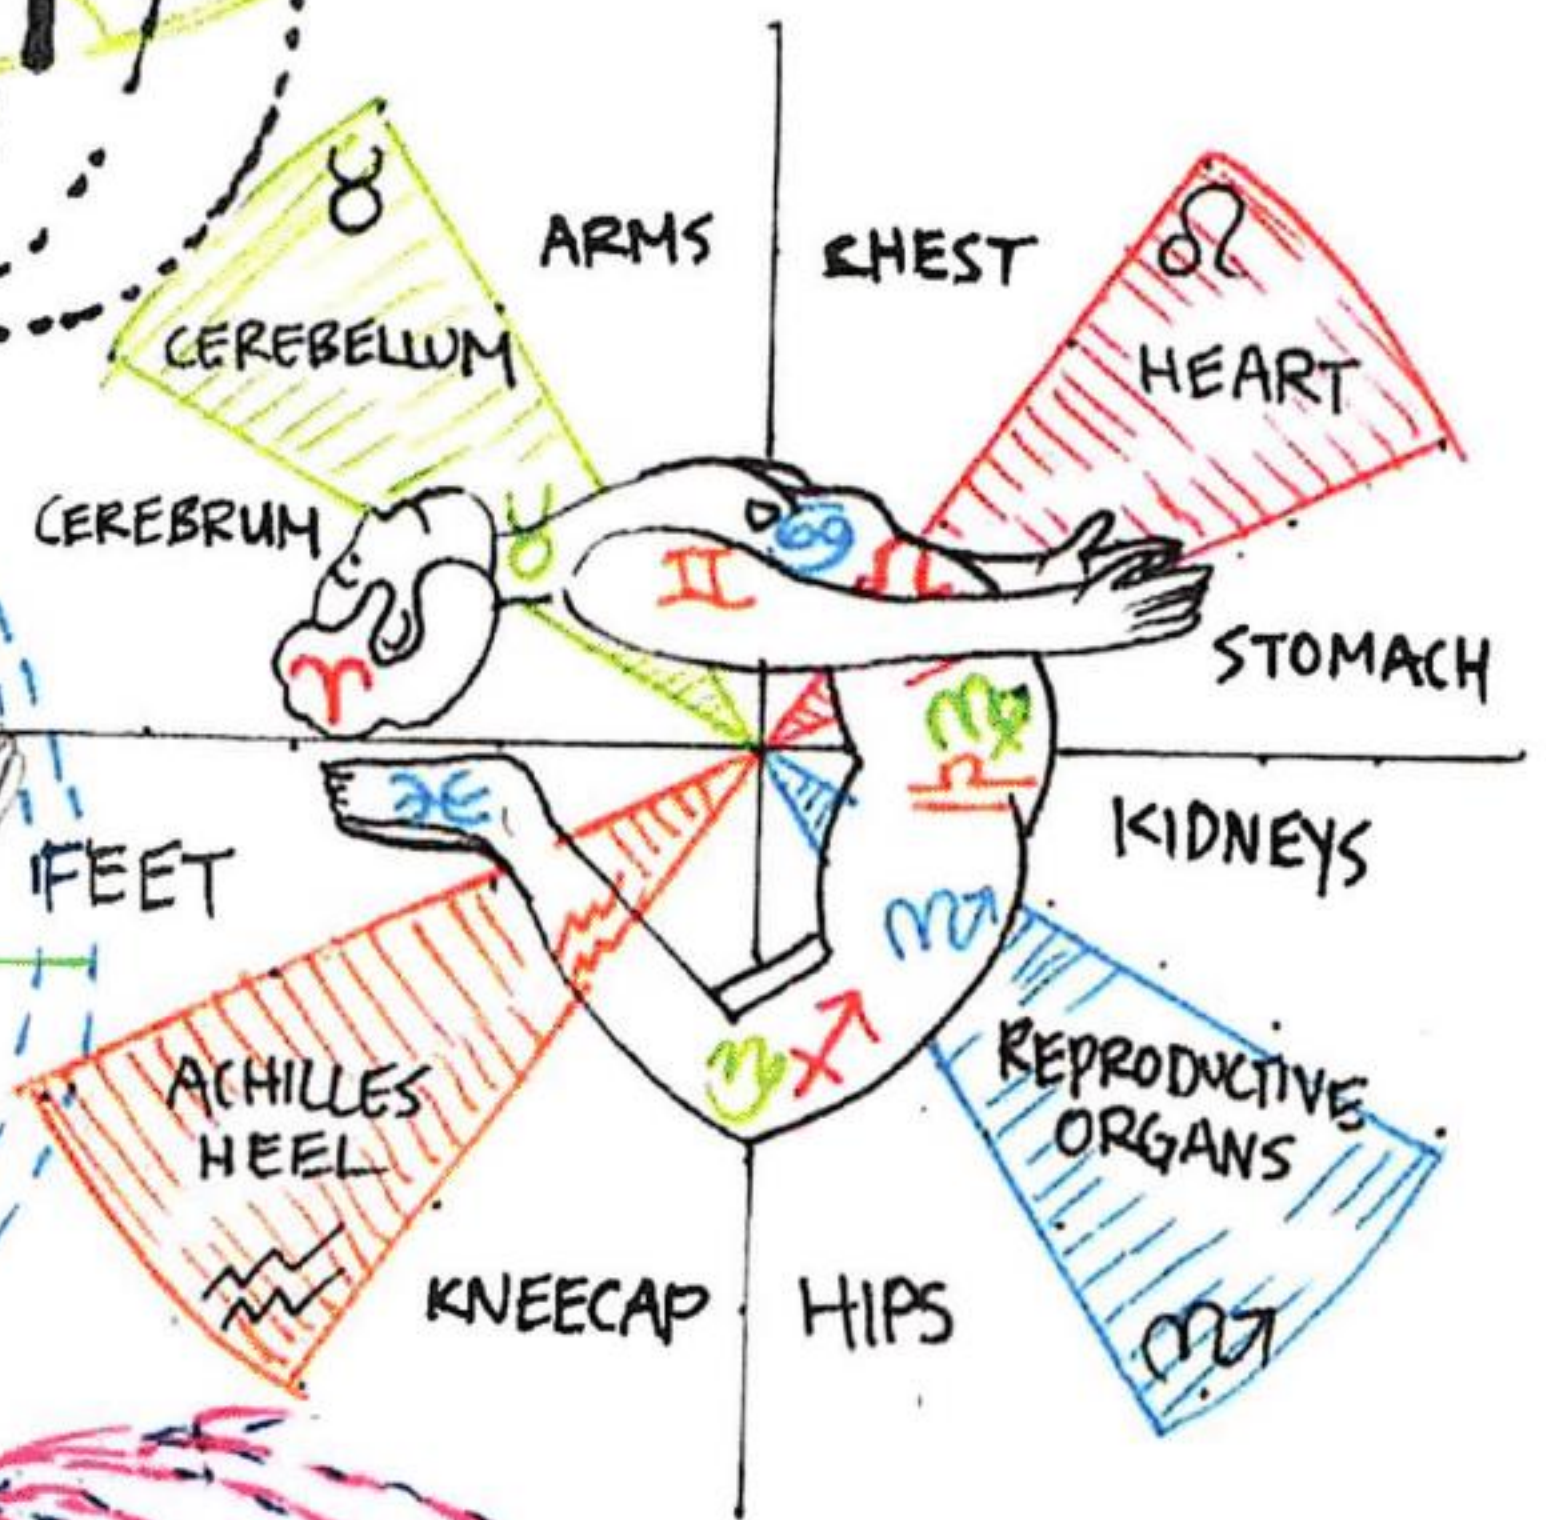 ♉
♌
ARMS
CHEST
CEREBELLUM
HEART
CEREBRUM
♉
♋
♊
♌
♈
STOMACH
♍
♎
♓
FEET
KIDNEYS
♏
♒
♑
♐
ACHILLES
HEEL
REPRODUCTIVE
ORGANS
♒
KNEECAP
HIPS
♏